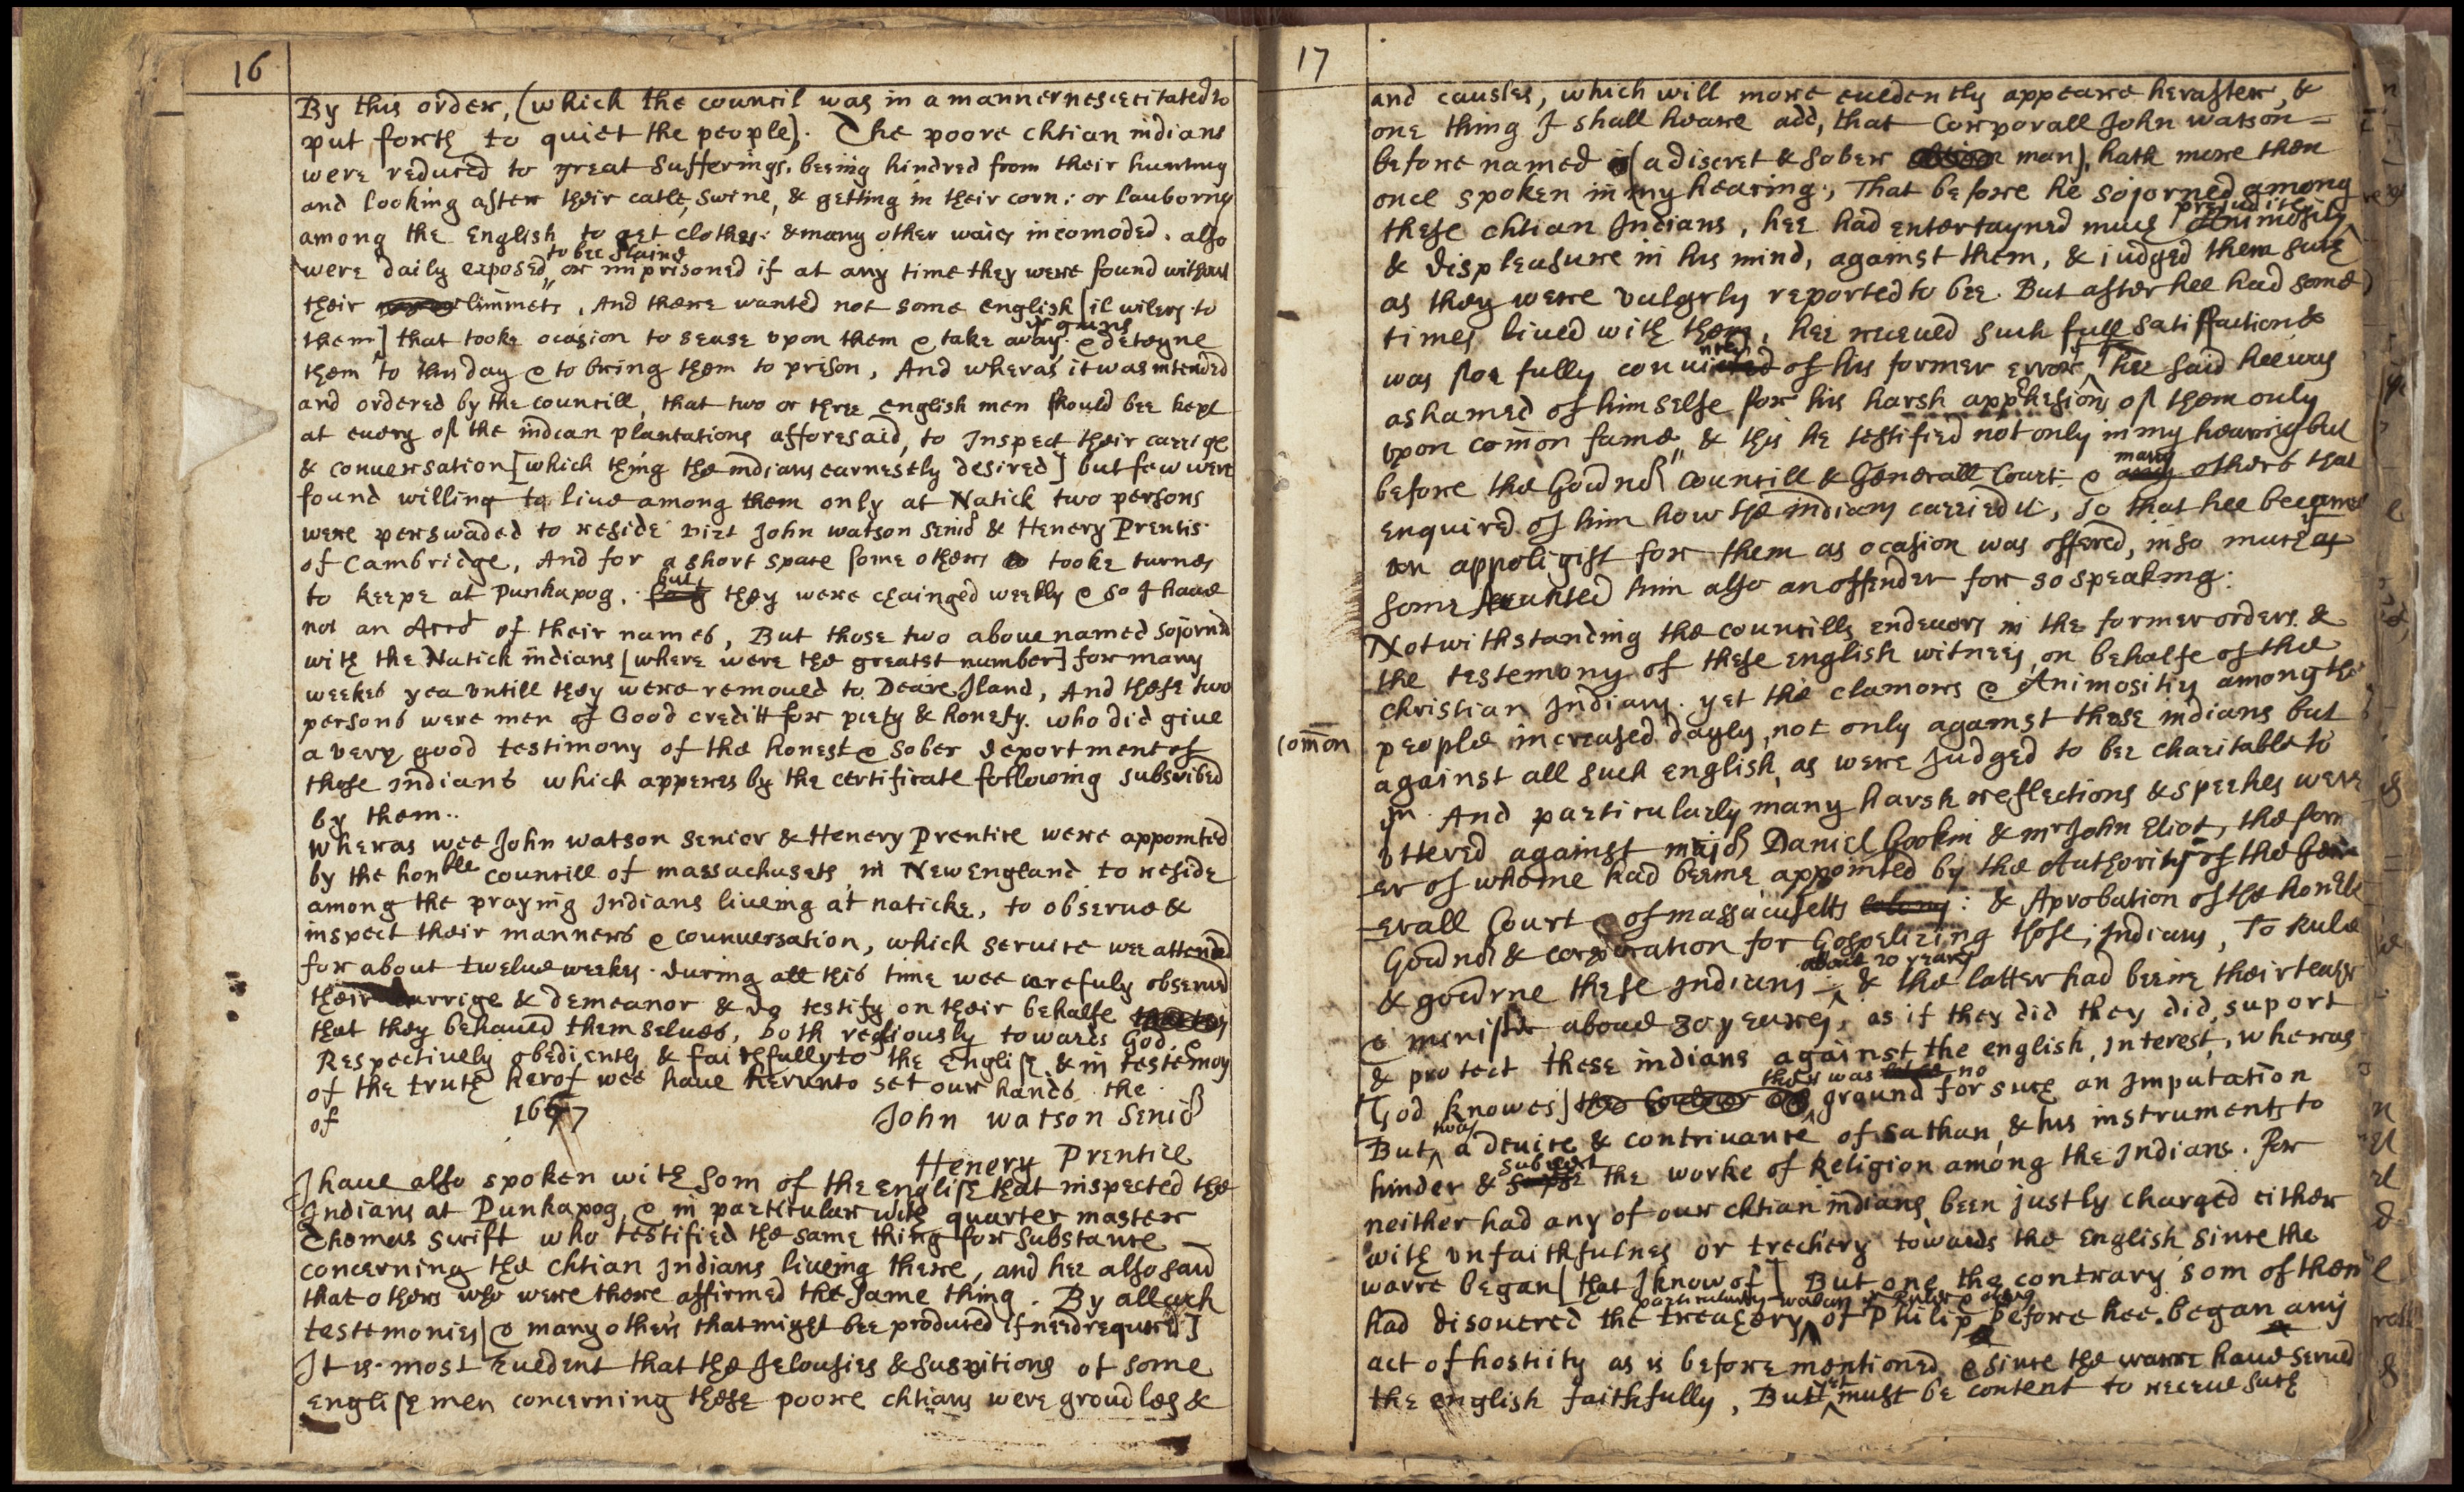 16
By this order, (which the council was in a manner nescecitated to
put forth to quiet the people). The poore chtian indians
were reduced to great sufferings. beeing hindred from their hunting
and looking after their catle, swine, & getting in their corn: or lauboring
among the English to get clothes: & many other waies incomoded. also
were daily exposed to bee slaine or imprisoned if at any time they were found without
their limmets, And there wanted not some english [il wilers to
them] that tooke ocasion to sease vpon them & take away yr guns & detayne
them to this day & to bring them to prison, And wheras it was intended
and ordered by the councill, that two or three english men should bee kept
at euery of the indian plantations afforesaid, to Inspect their carrige
& conuersation [which thing the indians earnestly desired] but few were
found willing to liue among them only at Natick two persons
were perswaded to reside vizt John watson senior & Henery Prentis
of Cambridge, And for a short space some others tooke turnes
to keepe at Punkapog, but they were chainged weekly & so I haue
not an Acco of their names, But those two aboue named sojornd
with the Natick indians [where were the greatst number] for many
weekes yea vntill they were remoued to Deare Iland, And these two
persons were men of Good creditt for piety & honesty. who did giue
a very good testimony of the honest & sober deportment of
those indians which apperes by the certificate following subscribed
by them..
Wheras wee John watson senior & Henery Prentice were appointed
by the honble councill of massachusets in New England to reside
among the praying Indians liueing at naticke, to obserue &
inspect their manners & counuersation, which seruice wee attended
for about twelue weekes. during all this time wee carefuly obserued
their carrige & demeanor & do testify on their behalfe
that they behaued themselues, both regiously towards God, &
Respectiuely obediently & faithfully to the English, & in testemoy
of the truth herof wee haue herunto set our hands the
of 1677 John watson Senior
Henery Prentice
I haue also spoken with som of the english that inspected the
Indians at Punkapog, & in particular with quarter master
Thomas swift who testified the same thing for substance
concerning the chtian indians liueing there, and hee also said
that others who were there affirmed the same thing. By all such
testemonies [& many others that might bee produced if need require]
It is most euedent that the Jelousies & suspitions of some
english men concerning these poore chtians were groudles &
17
and causles, which will more euedently appeare herafter, &
one thing I shall heare add, that Corporall John watson
before named (a discret & sober man), hath more then
once spoken in my hearing; That before he sojorned among
these chtian Indians, hee had entertayned much prejudice Animosity
& displeasure in his mind, against them, & iudged them such
as they were vulgrly reported to bee. But after hee had some
times liued with them, hee receued such full satisfaction &
was soe fully conuinced of his former error, hee said hee was
ashamed of himselfe for his harsh apprhesions of them only
vpon comon fame, & this he testified not only in my hearing but
before the Gouernor councill & Generall Court & many others that
enquired of him how the indians carried it, so that hee became
an appoligist for them as ocasion was offered, in so much as
some accunted him also an offender for so speaking:
Notwithstanding the councills endeuors in the former orders. &
the testemony of these english witnes, on behalfe of the
christian Indians. yet the clamors & Animosity among the
comon
people increased dayly, not only against these indians but
against all such english, as were Judged to bee charitable to
ym. And particularly many harsh reflections & speeches were
vttered against major Daniel Gookin & mr John Eliot, the form
er of whome had beene appointed by the Authority of the Gen
erall Court of massacusetts colony: & Aprobation of the honble
Gouernor & corporation for Gospelizing those Indians, To Rule
& gouerne these Indians about 20 yeares & the latter had beene their teacher
& minister aboue 30 yeares, as if they did they did, suport
& protect these indians against the english Interest, wheras
[God knowes] there was no ground for such an Imputation
But was a deuice & contriuance of sathan, & his instruments to
hinder & subvert the worke of Religion among the Indians. for
neither had any of our chtian indians been justly charged either
with vnfaithfulnes or trechery towards the English since the
warre began [that I know of] But one the contrary som of them
had disouered the treachery particularly waban & others of Philip before hee began any
act of hostiity as is before mentioned & since the warre haue serued
the english faithfully, But yet must be content to receue such